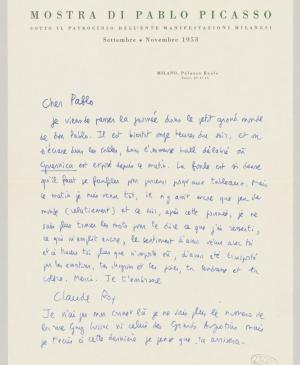 MOSTRA DI PABLO PICASSO
SOTTO IL PATROCINIO DELL'ENTE MANIFESTAZIONI MILANESI
Settembre • Novembre 1953
MILANO, Palazzo Reale
Cher Pablo
Je viens de passer la journée dans le petit grand monde
de bon Pablo. Il est bientôt onze heures du soir, et on
s'écrase dans les salles, dans l'immense hall délabré où
Guernica est exposé depuis ce matin. La foule est si dense
qu'il faut se faufiler pour parvenir jusqu'aux tableaux. Mais
ce matin je suis venu tôt, il n'y avait encore que peu de
monde (relativement) et ce soir, après cette journée, je ne
sais plus trouver les mots pour te dire ce que j'ai ressenti,
ce qui m'emplit encore, le sentiment d'avoir vécu avec toi
et ici
plus que n'importe où, d'avoir été
par les émotions, les chagrins et les joies, la tendresse et la
colère. Merci. Je t'embrasse.
Claude Roy
Je n'ai pas mon carnet là je ne sais plus le numéro de
la rue Gay Lussac ni celui des Grands Augustins mais
je
à cette dernière je pense que ça arrivera.